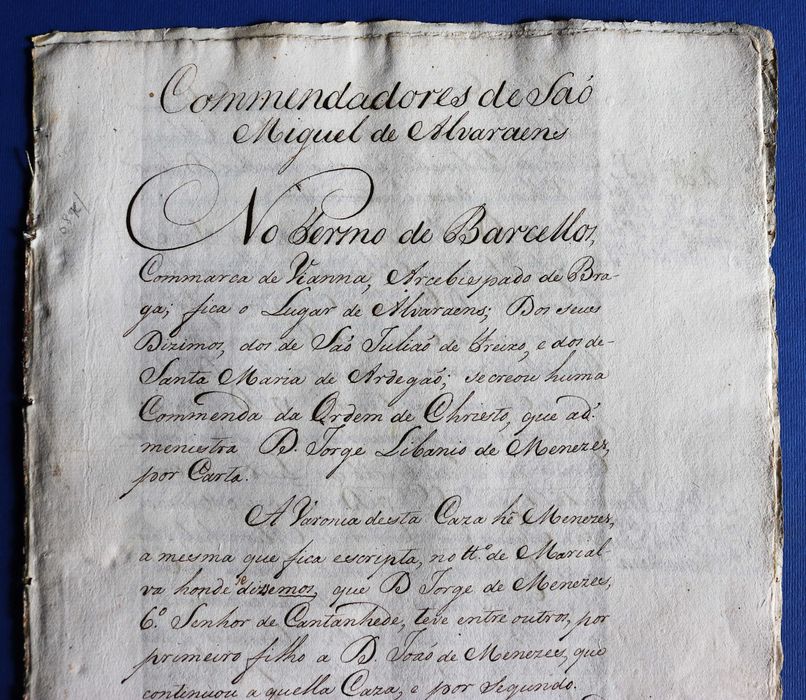 Commendadores de Saõ
Miguel de Alvaraens
No Termo de Barcellos,
Commarca de Vianna, Arcebispado de Bra-
ga; fica o Lugar de Alvaraens; Dos seus
Dizimos, dos de Saõ Juliaõ de Freixo, e dos de
Santa Maria de Ardegaõ; se creou huma
Commenda da Ordem de Christo, que ad-
menistra D. Jorge Libanio de Menezes,
por Carta.
A Varonia desta Caza hê Menezes,
a mesma que fica escripta, no tt.º de Marial-
va honde dissemos, que D Jorge de Menezes,
6.º Senhor de Cantanhede, teve entre outros, por
primeiro filho a D. Joaõ de Menezes, que
continuou a quella Caza, e por segundo.